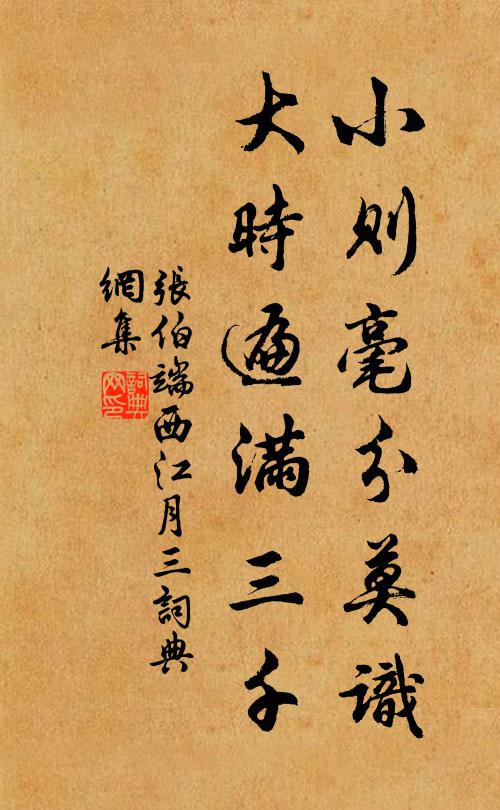 小则毫分莫識
大時遍滿三千
張伯端西江月三詞典
網集
詞典
网印